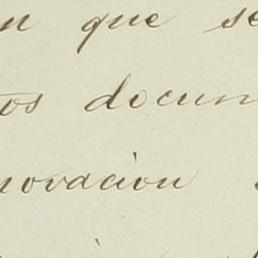 n que se
tos docum
novacion